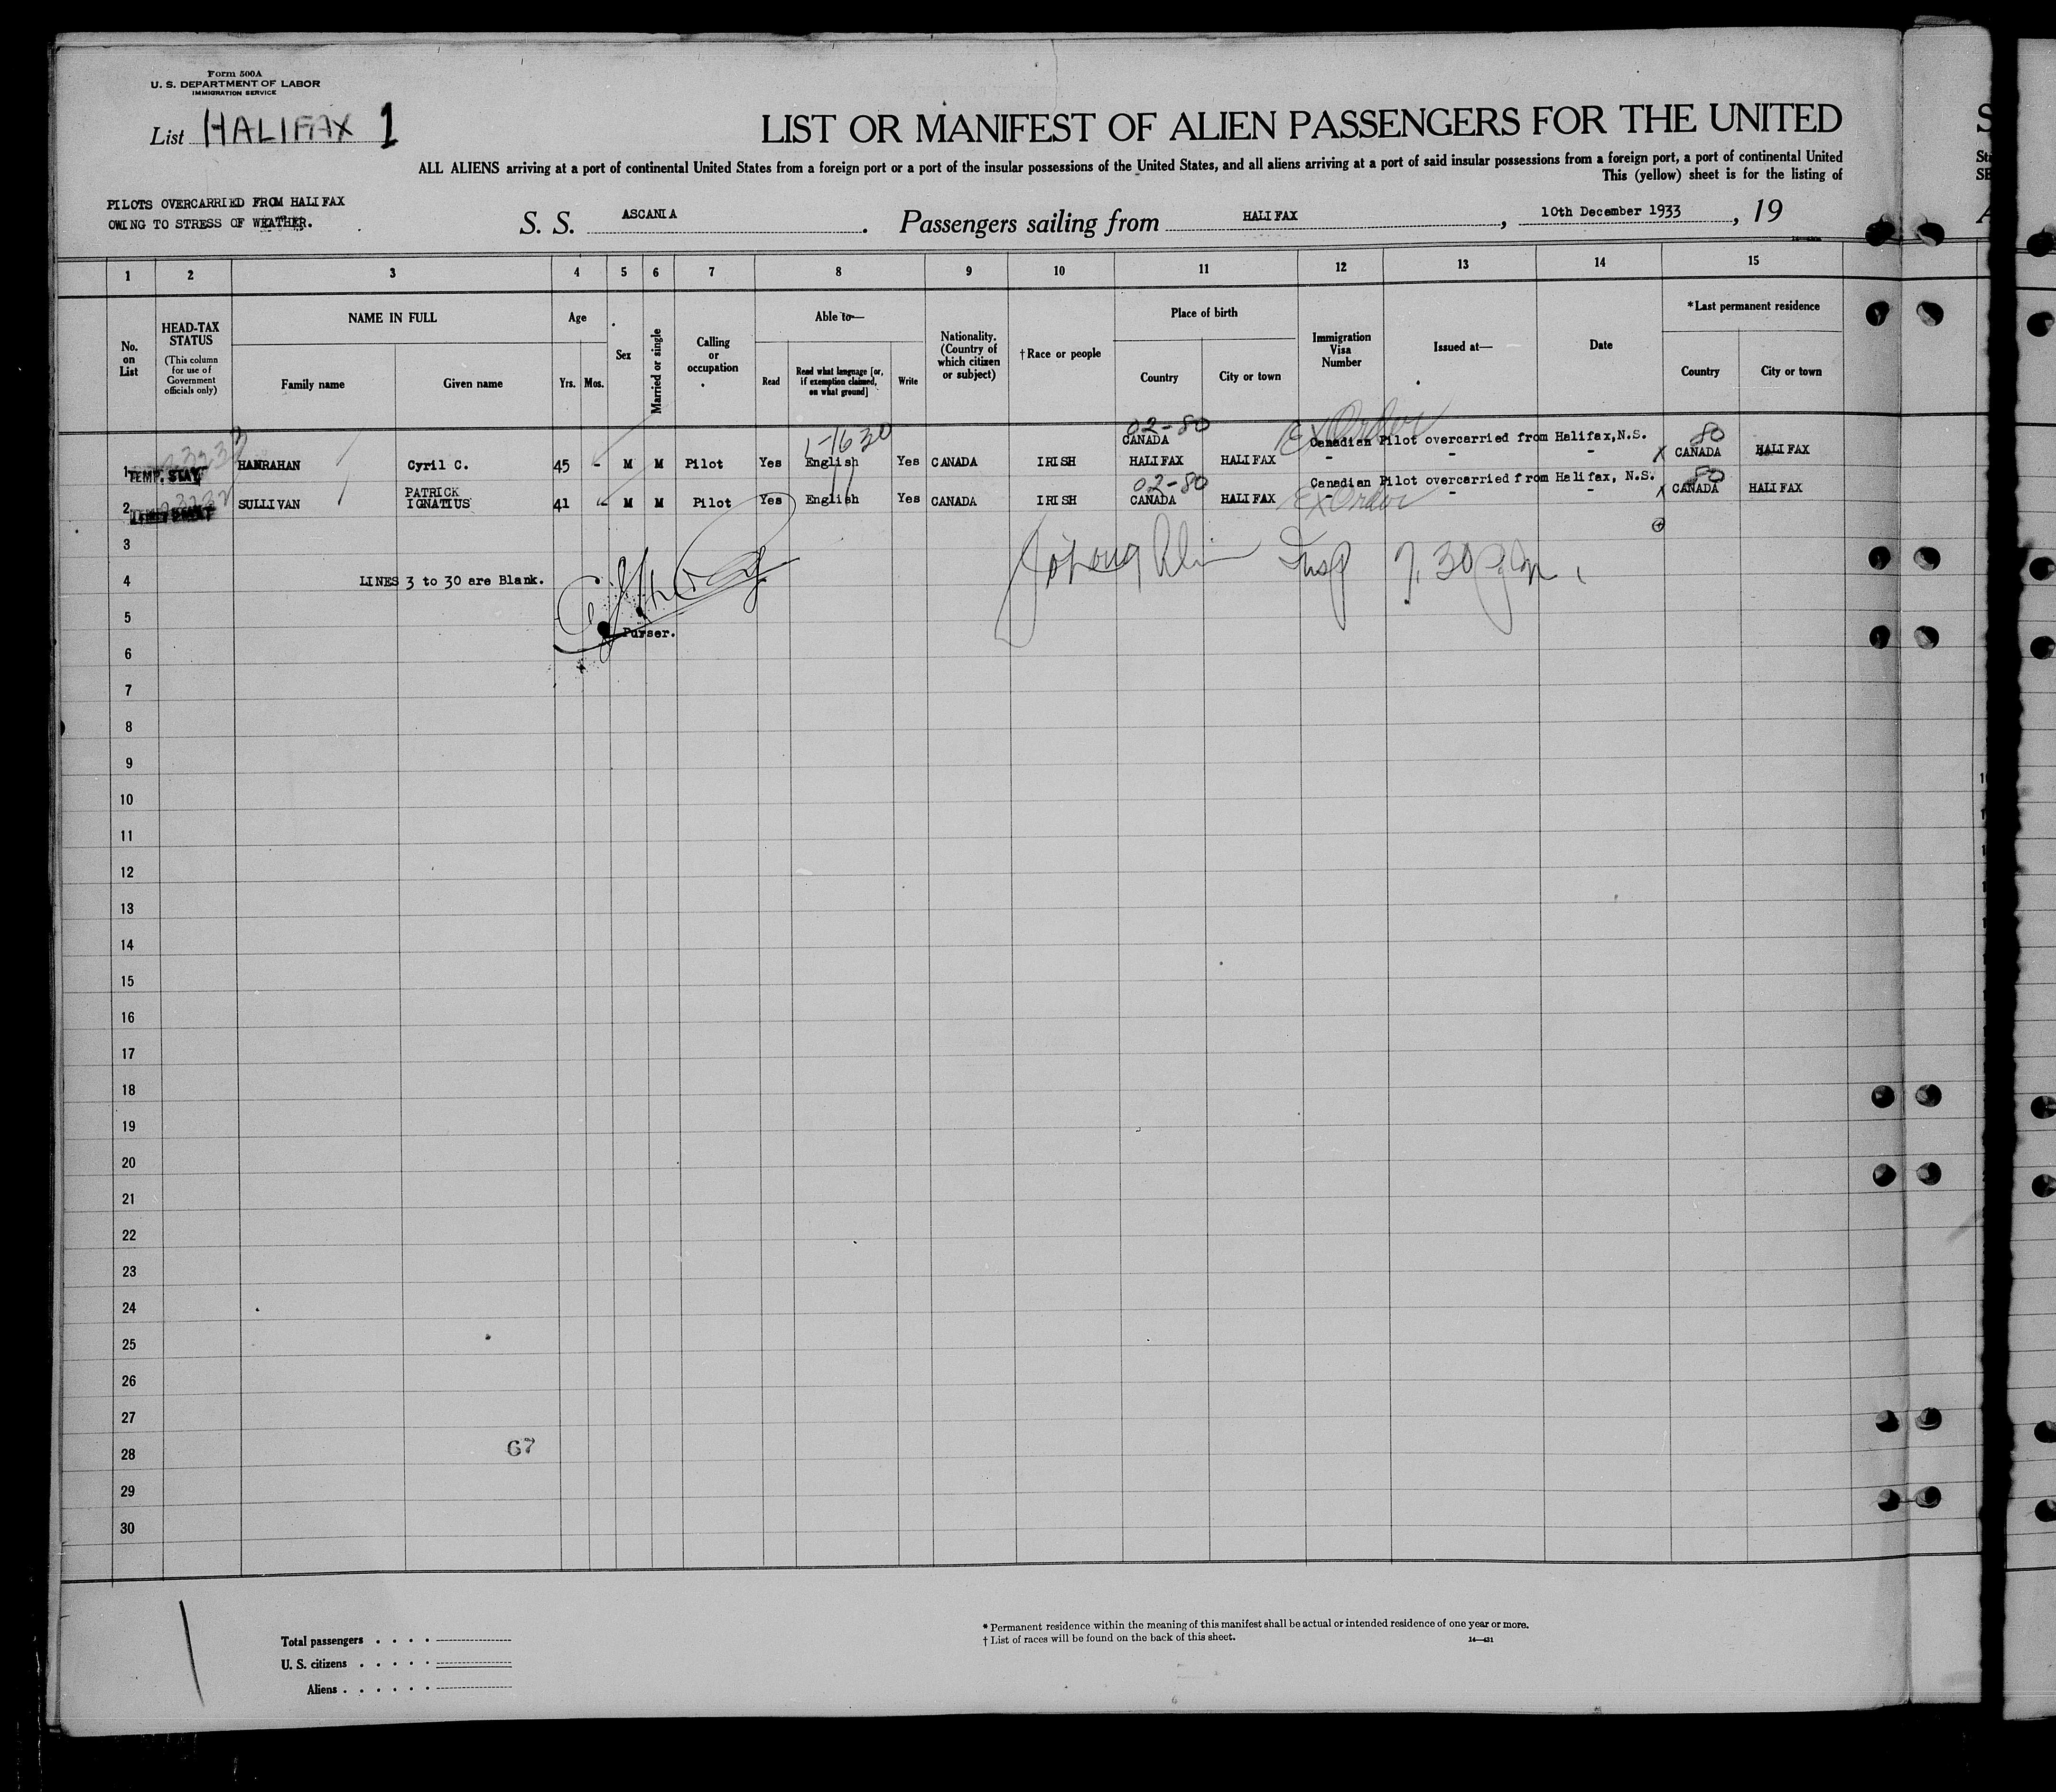 Form 500A
U. S. DEPARTMENT OF LABOR
IMMIGRATION SERVICE
List HALIFAX 1
LIST OR MANIFEST OF ALIEN PASSENGERS FOR THE UNITED
ALL ALIENS arriving at a port of continental United States from a foreign port or a port of the insular possessions of the United States, and all aliens arriving at a port of said insular possessions from a foreign port, a port of continental United
This (yellow) sheet is for the listing of
PILOTS OVERCARRIED FROM HALIFAX
OWING TO STRESS OF WEATHER.
S. S. ASCANIA. Passengers sailing from HALIFAX, 10th December 1933, 19
1 2 3 4 5 6 7 8 9 10 11 12 13 14 15
No. on List
HEAD-TAX STATUS
(This column for use of Government officials only)
NAME IN FULL
Family name
Given name
Age
Yrs. Mos.
Sex
Married or single
Calling or occupation
Able to—
Read
Read what language [or, if exemption claimed, on what ground]
Write
Nationality. (Country of which citizen or subject)
†Race or people
Place of birth
Country
City or town
Immigration Visa Number
Issued at—
Date
*Last permanent residence
Country
City or town
02-80 Ex Order 80
CANADA Canadian Pilot overcarried from Halifax,N.S.
1 TEMP. STAY HANRAHAN Cyril C. 45 - M M Pilot Yes English Yes CANADA IRISH HALIFAX HALIFAX - - - X CANADA HALIFAX
02-80 Canadian Pilot overcarried from Halifax, N.S. 80
PATRICK
2 SULLIVAN IGNATIUS 41 M M Pilot Yes English Yes CANADA IRISH CANADA HALIFAX Ex Order - - - X CANADA HALIFAX
3
Insp 7.30 P.m.
4 LINES 3 to 30 are Blank.
5
Purser.
6
7
8
9
10
11
12
13
14
15
16
17
18
19
20
21
22
23
24
25
26
27
67
28
29
30
Total passengers
U. S. citizens
Aliens
* Permanent residence within the meaning of this manifest shall be actual or intended residence of one year or more.
† List of races will be found on the back of this sheet.
14—431